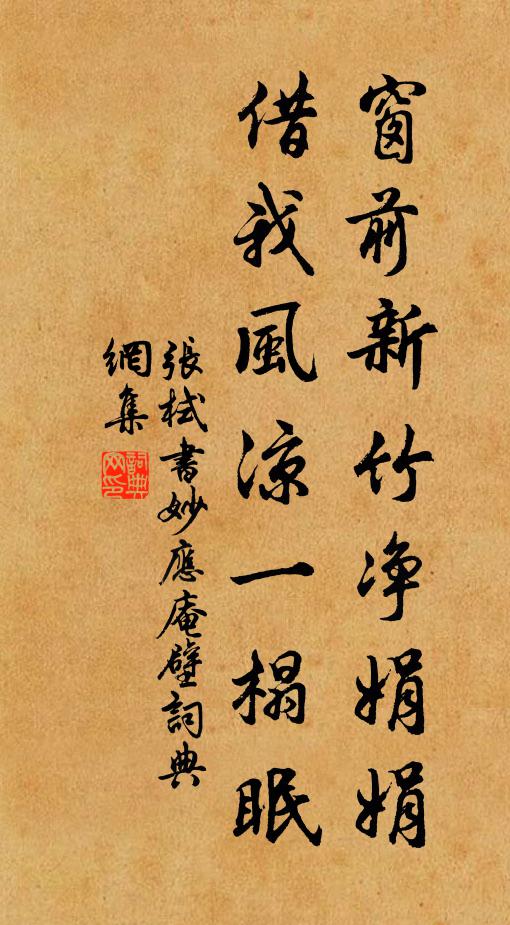 窗前新竹净娟娟
借我風凉一榻眠
張栻書妙應庵壁詞典
網集
詞典
网印